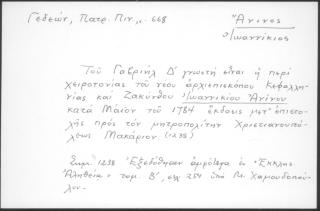 Γεδεών, Πατρ. Πιν., σ. 668
Ἀνίνος
Ἰωαννίκιος
Τοῦ Γαβριὴλ Δ΄ γνωστή εἶναι ἡ περὶ
χειροτονίας τοῦ νέου ἀρχιεπισκόπου Κεφαλλη-
νίας καὶ Ζακύνθου Ἰωαννικίου Ἀνίνου
κατὰ Μάϊον τοῦ 1784 ἔκδοσις μετ' ἐπιστο-
λῆς πρὸς τὸν μητροπολίτην Χριστιανουπό-
λεως Μακάριον. (1238)
Σημ. 1238 Ἐξεδόθησαν ἀμφότερα ἐν "Ἐκκλησ.
Ἀληθείᾳ" τομ. Β΄, σελ. 254 ὑπὸ Μ. Χαμουδοπού-
λου.-